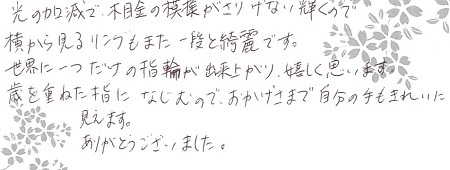 光の加減で、木目金の模様がさりげない輝くので
横から見るリングもまた一段と綺麗です。
世界に一つだけの指輪が出来上がり、嬉しく思います。
歳を重ねた指になじむので、おかげさまで自分の手もきれいに
見えます。
ありがとうございました。